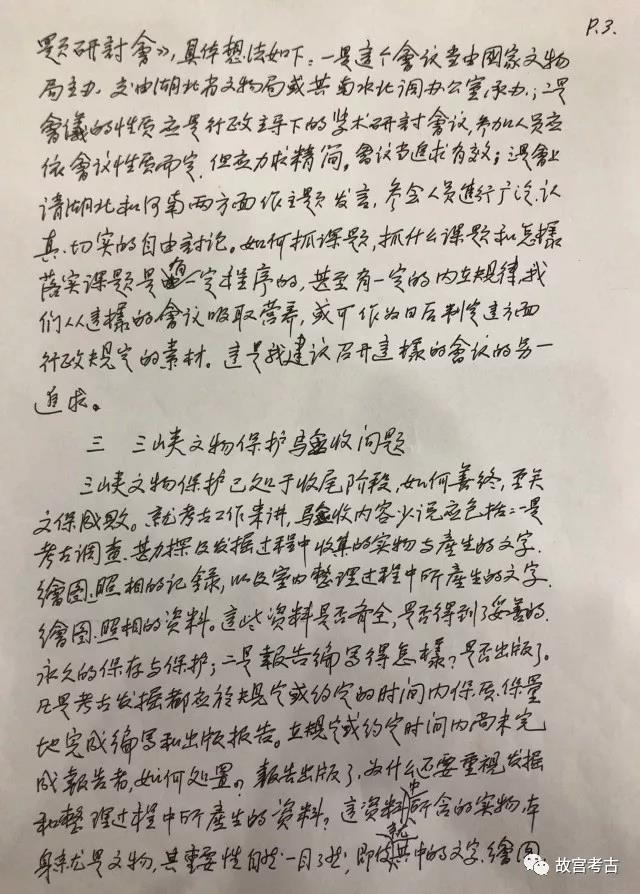 P.3.
题研討會》，具体想法如下：一是这个會议当由國家文物
局主办，交由湖北省文物局或其南水北调办公室承办；二是
會議的性质应是行政主导下的学术研討會议，参加人员应
依會议性质而定，但应力求精简。會议当追求有效；三是會上
请湖北和河南两方面作主题发言，参会人员進行广泛、认
真、切实的自由討论。如何抓课题，抓什么课题和怎樣
落实课题是有一定程序的，甚至有一定的内在規律，我
们从這樣的會议吸取营养，或可作为日后制定這方面
行政規定的素材。這是我建议召开這樣的會议的另一
追求。
三 三峡文物保护驗收问题
三峡文物保护已处于收尾阶段，如何善终，至关
文保成敗。就考古工作来讲，驗收内容少说应包括：一是
考古調查、勘探及发掘过程中收集的实物与產生的文字、
繪图、照相的记録，以及室内整理过程中所產生的文字、
繪图、照相的资料。這些资料是否齐全，是否得到了妥善的、
永久的保存与保护；二是報告编寫得怎樣？是否出版了。
凡是考古发掘都应於規定或约定的时间内保质、保量
地完成编寫和出版报告。在規定或约定时间内尚未完
成報告者，如何处置。報告出版了，为什么还要重視发掘
和整理过程中所產生的资料？這资料中所含的实物，本
身就是文物，其重要性自然一目了然，即使就其中的文字、繪图、
故宫考古